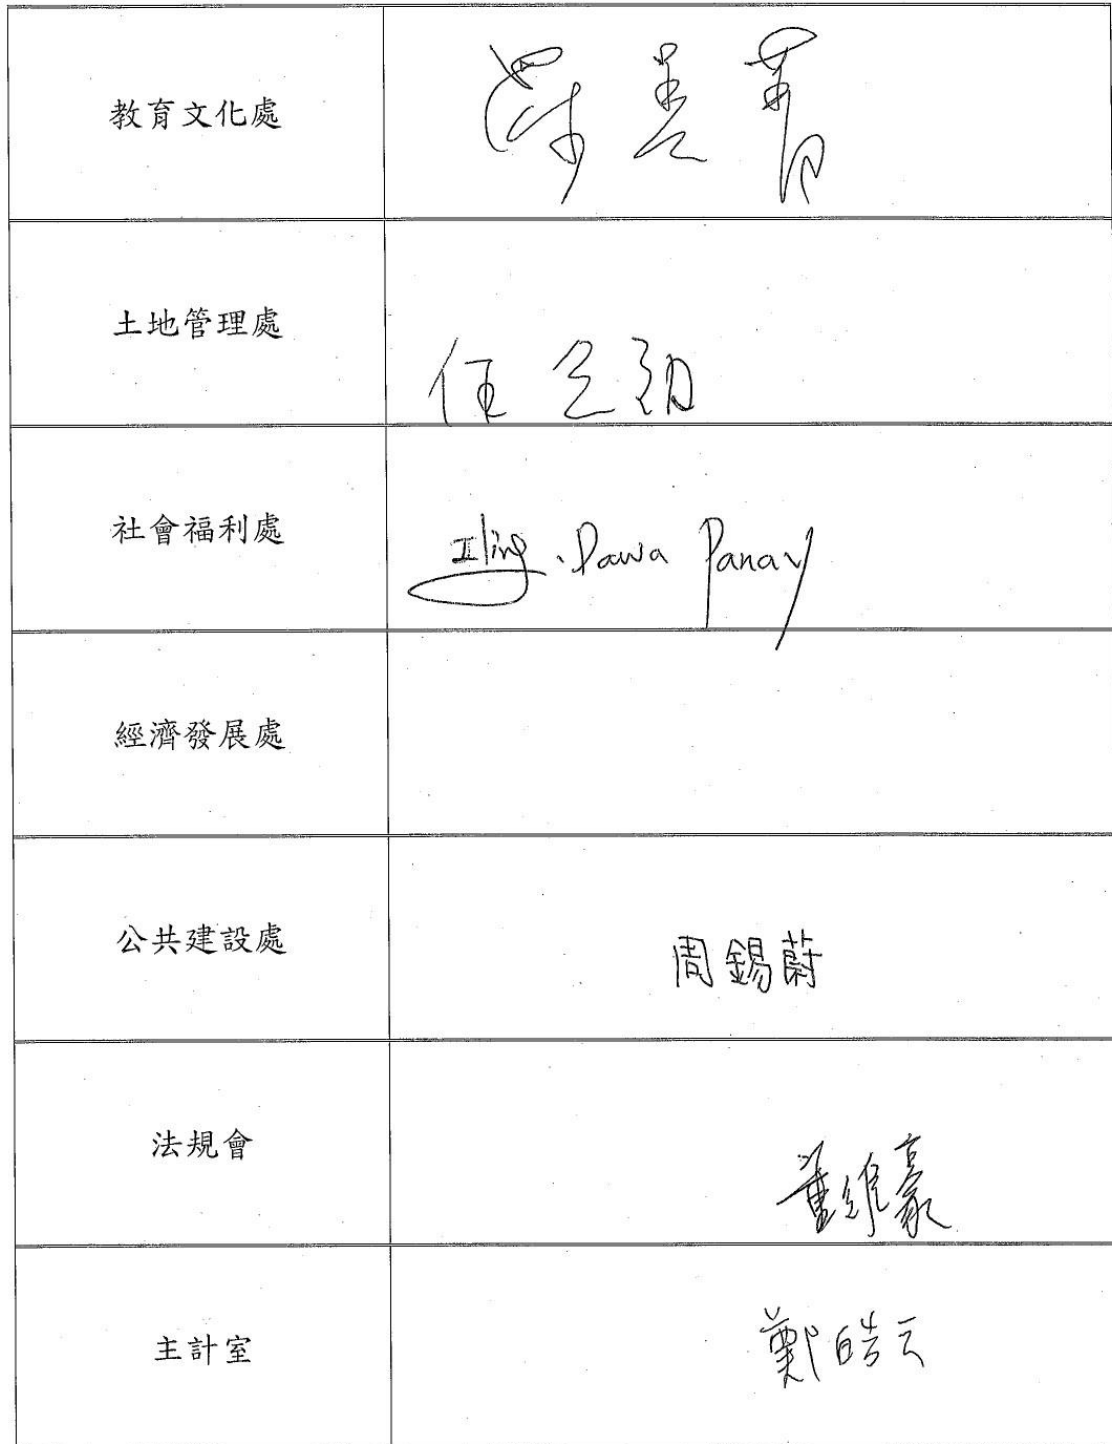 教育文化處
土地管理處
任
社會福利處
Iling.Dawa Panay
經濟發展處
公共建設處
周錫蔚
法規會
董維豪
主計室
鄭皓云